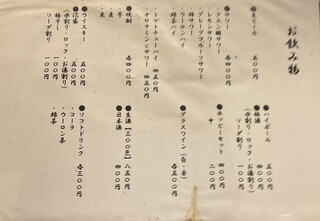 お飲み物
●生ビール 五〇〇円
●サワー 各四〇〇円
・レモンサワー
・グレープフルーツサワー
・梅サワー
・ウーロンハイ
・緑茶ハイ
・トマトチューハイ 四五〇円
・オロナミンCサワー 四五〇円
●焼酎 各四〇〇円
・芋
・麦
・米
●ウイスキー 五〇〇円
●泡盛 五〇〇円
(水割り・ロック・お湯割り)
ソーダ割り
●ハイボール 四〇〇円
●梅酒 四〇〇円
(水割り・ロック・お湯割り)
ソーダ割り
●ホッピーセット 四〇〇円
中 二〇〇円
●グラスワイン(白・赤) 各五〇〇円
●生酒【三〇〇ml】 八五〇円
●日本酒 四〇〇円
●ソフトドリンク 各三〇〇円
・コーラ
・ウーロン茶
・緑茶